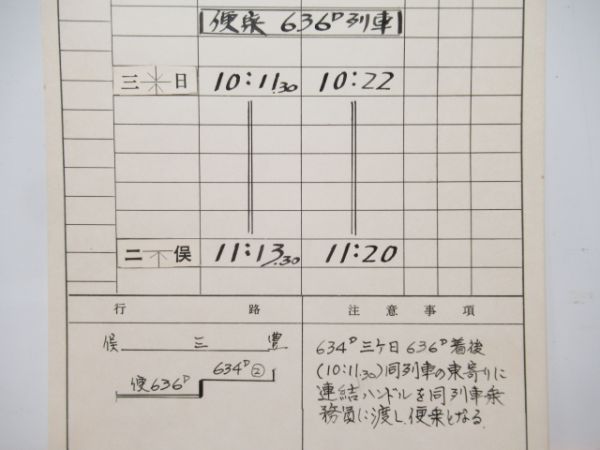 便乗 636D列車
三 日 10:11.30 10:22
二 俣 11:13.30 11:20
行 路
俣 三 豊
便636D 634D②
注意事項
634D三ケ日 636D着後
(10:11.30)同列車の東寄りに
連結ハンドルを同列車乗
務員に渡し、便乗となる。